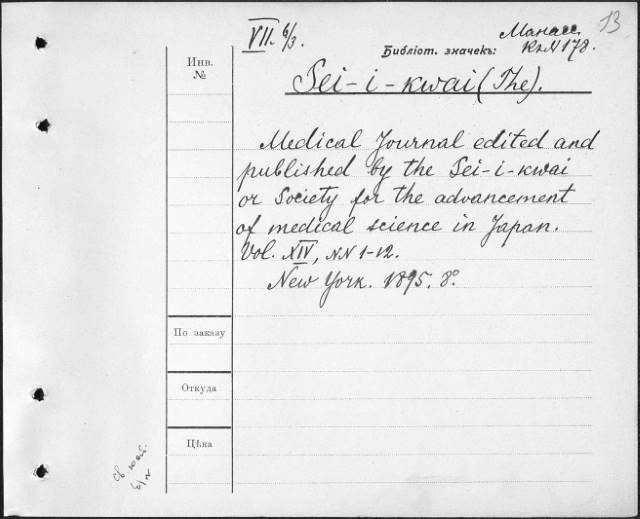 13
VII. 6/3.
Библіот. значекъ:
КкN 178.
Инв.
№
Sei-i-kwai (The).
Medical Journal edited and
published by the Sei-i-kwai
or Society for the advancement
of medical science in Japan.
Vol. XIV, NN 1-12.
New York. 1895. 8°.
По заказу
Откуда
Цѣна